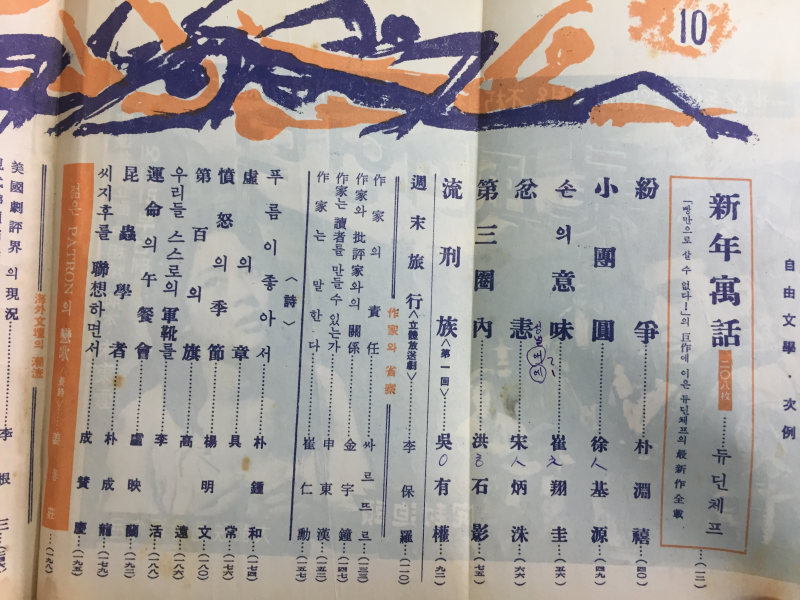 10
自由文學·次例
新年寓話 二〇八枚……듀딘체프…(一二)
「빵만으로 살 수 없다!」의 巨作에 이은 듀딘체프의 最新作全載
紛爭……朴淵禧…(四〇)
小團圓……徐基源…(四九)
손의意味……崔翔圭…(五六)
忿恚……宋炳洙…(六六)
第三圈內……洪石影…(七五)
流刑族〈第一回〉……吳有權…(九二)
週末旅行〈立體放送劇〉……李保羅…(一一〇)
作家와 省察
作家의 責任……싸르뜨르…(一三三)
作家와 批評家와의 關係……金宇鐘…(一四七)
作家는 讀者를 만들수있는가……申東漢…(一五三)
作家는 말한다……崔仁勳…(一五七)
〈詩〉
푸름이좋아서……朴鍾和…(一七四)
虛의章……具常…(一七六)
憤怒의季節……楊明文…(一八〇)
第百의旗……高遠…(一八二)
우리들 스스로의 軍靴를……李活…(一八八)
運命의午餐會……盧映蘭…(一九三)
昆蟲學者……朴成龍…(一七九)
씨지후를 聯想하면서……成贊慶…(一九五)
젊은 PATRON의 戀歌…(一九八)
海外文壇의 潮流
美國劇評界의 現況……李根三